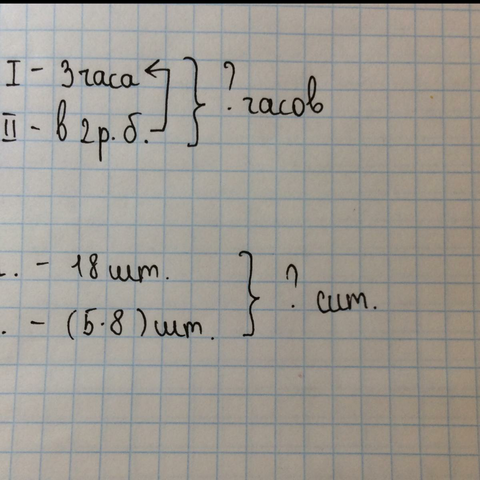 I - 3 часа } ? часов
II - в 2 р. б.
. - 18 шт. } ? шт.
. - (5·8) шт.